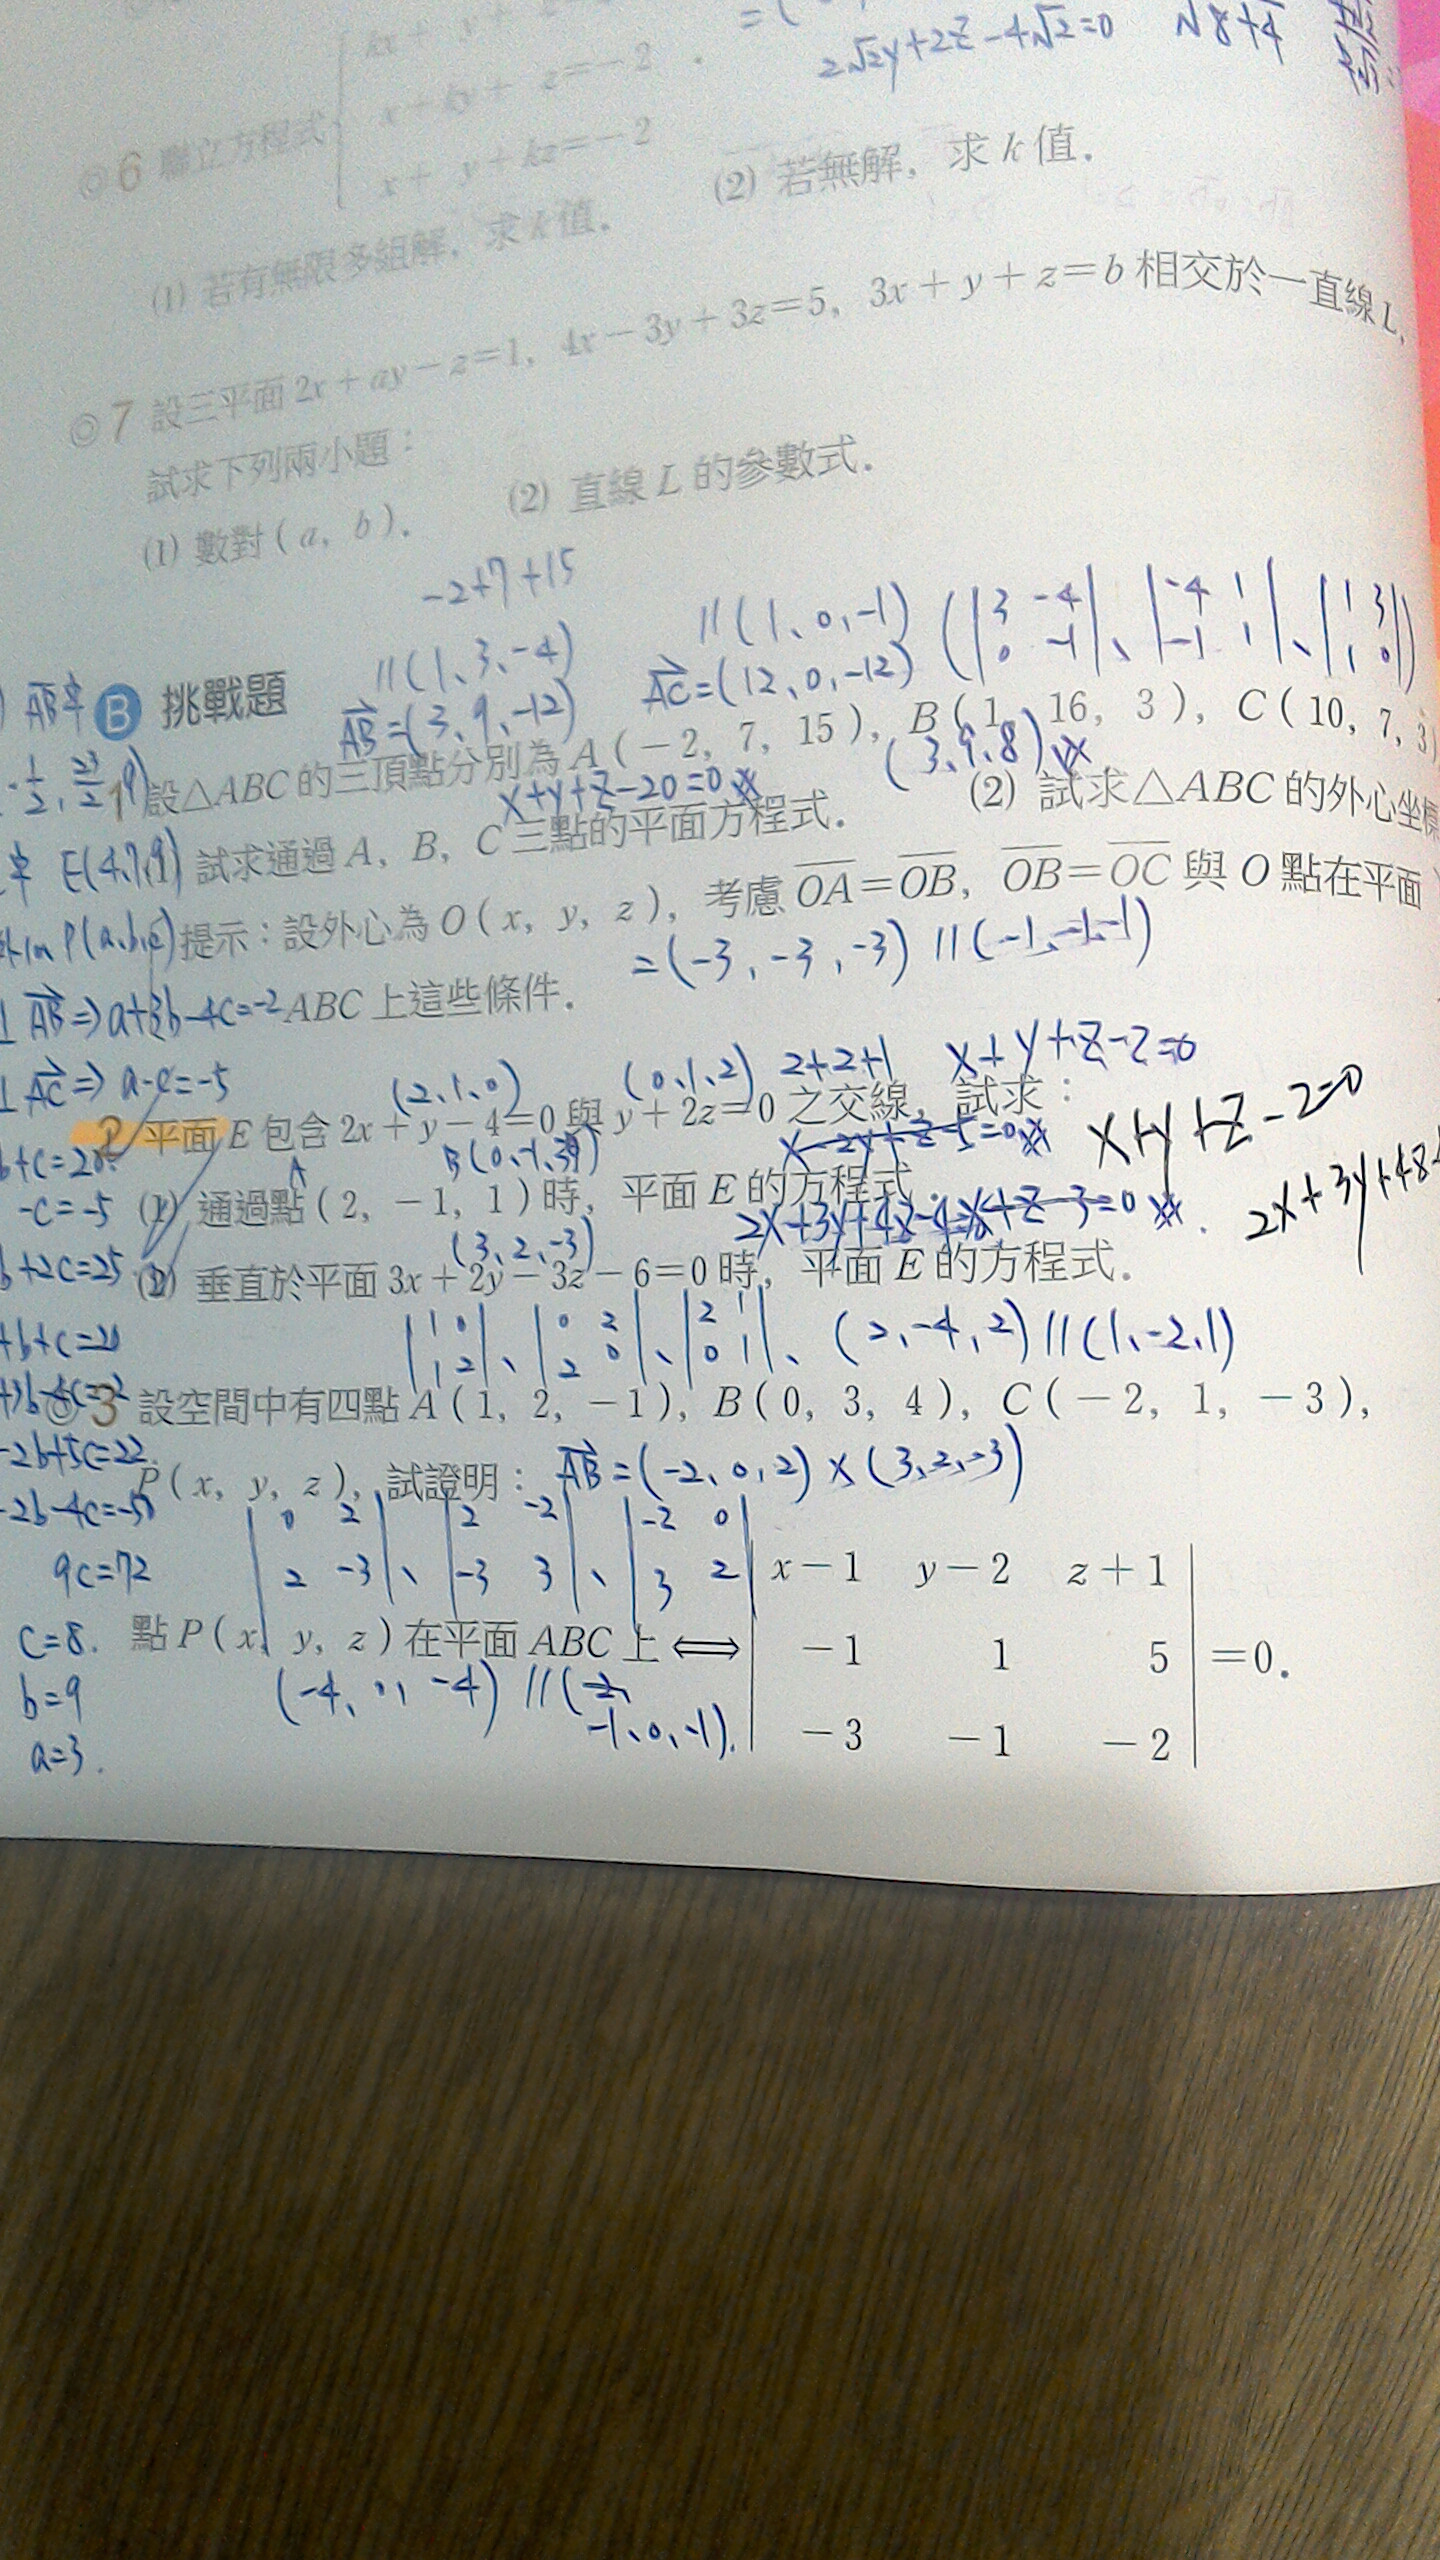 2√2y+2z-4√2=0 √8+4
◎6 聯立方程式
x+ky+ z=-2
x+ y+kz=-2
(1) 若有無限多組解，求k值． (2) 若無解，求k值．
◎7 設三平面2x+ay-z=1，4x-3y+3z=5，3x+y+z=b相交於一直線L，
試求下列兩小題：
(1) 數對(a, b)． (2) 直線L的參數式．
-2+7+15
//(1、3、-4) //(1、0、-1) (|3 -4|、|-4 1|、|1 3|)
|0 -1| |-1 1| |1 0|
B 挑戰題
AB=(3、9、-12) AC=(12、0、-12)
1 設△ABC的三頂點分別為A(-2, 7, 15), B(1, 16, 3), C(10, 7, 3)
x+y+z-20=0 (3、9、8)
(1) 試求通過A, B, C三點的平面方程式． (2) 試求△ABC的外心坐標
E(4,7,9)
提示：設外心為O(x, y, z)，考慮OA=OB，OB=OC與O點在平面
P(a,b,c)
=(-3, -3, -3) //(-1,-1,-1)
ABC上這些條件．
AB⇒a+3b-4c=-2
AC⇒ a-c=-5
(2、1、0) (0、1、2) 2+2+1 x+y+z-2=0
2 平面E包含2x+y-4=0與y+2z=0之交線，試求：
x-2y+z-5=0 x+y+z-2=0
(1) 通過點(2, -1, 1)時，平面E的方程式．
2x+3y+4z-4=0 x+z-3=0
(3、2、-3)
(2) 垂直於平面3x+2y-3z-6=0時，平面E的方程式．
b+c=20
-c=-5
+2c=25
+b+c=20
|1 0|、|0 2|、|2 1|、(2,-4,2)//(1,-2,1)
|1 2| |2 0| |0 1|
◎3 設空間中有四點A(1, 2, -1), B(0, 3, 4), C(-2, 1, -3),
P(x, y, z)，試證明：
AB=(-2、0、2)×(3、2、-3)
-2b+5c=22
-2b-4c=-50
9c=72
c=8.
b=9
a=3.
|0 2|、|2 -2|、|-2 0|
|2 -3| |-3 3| |3 2|
點P(x, y, z)在平面ABC上⟺
x-1 y-2 z+1
-1 1 5 =0．
-3 -1 -2
(-4, 0, -4) //(-2,
-1、0、-1).